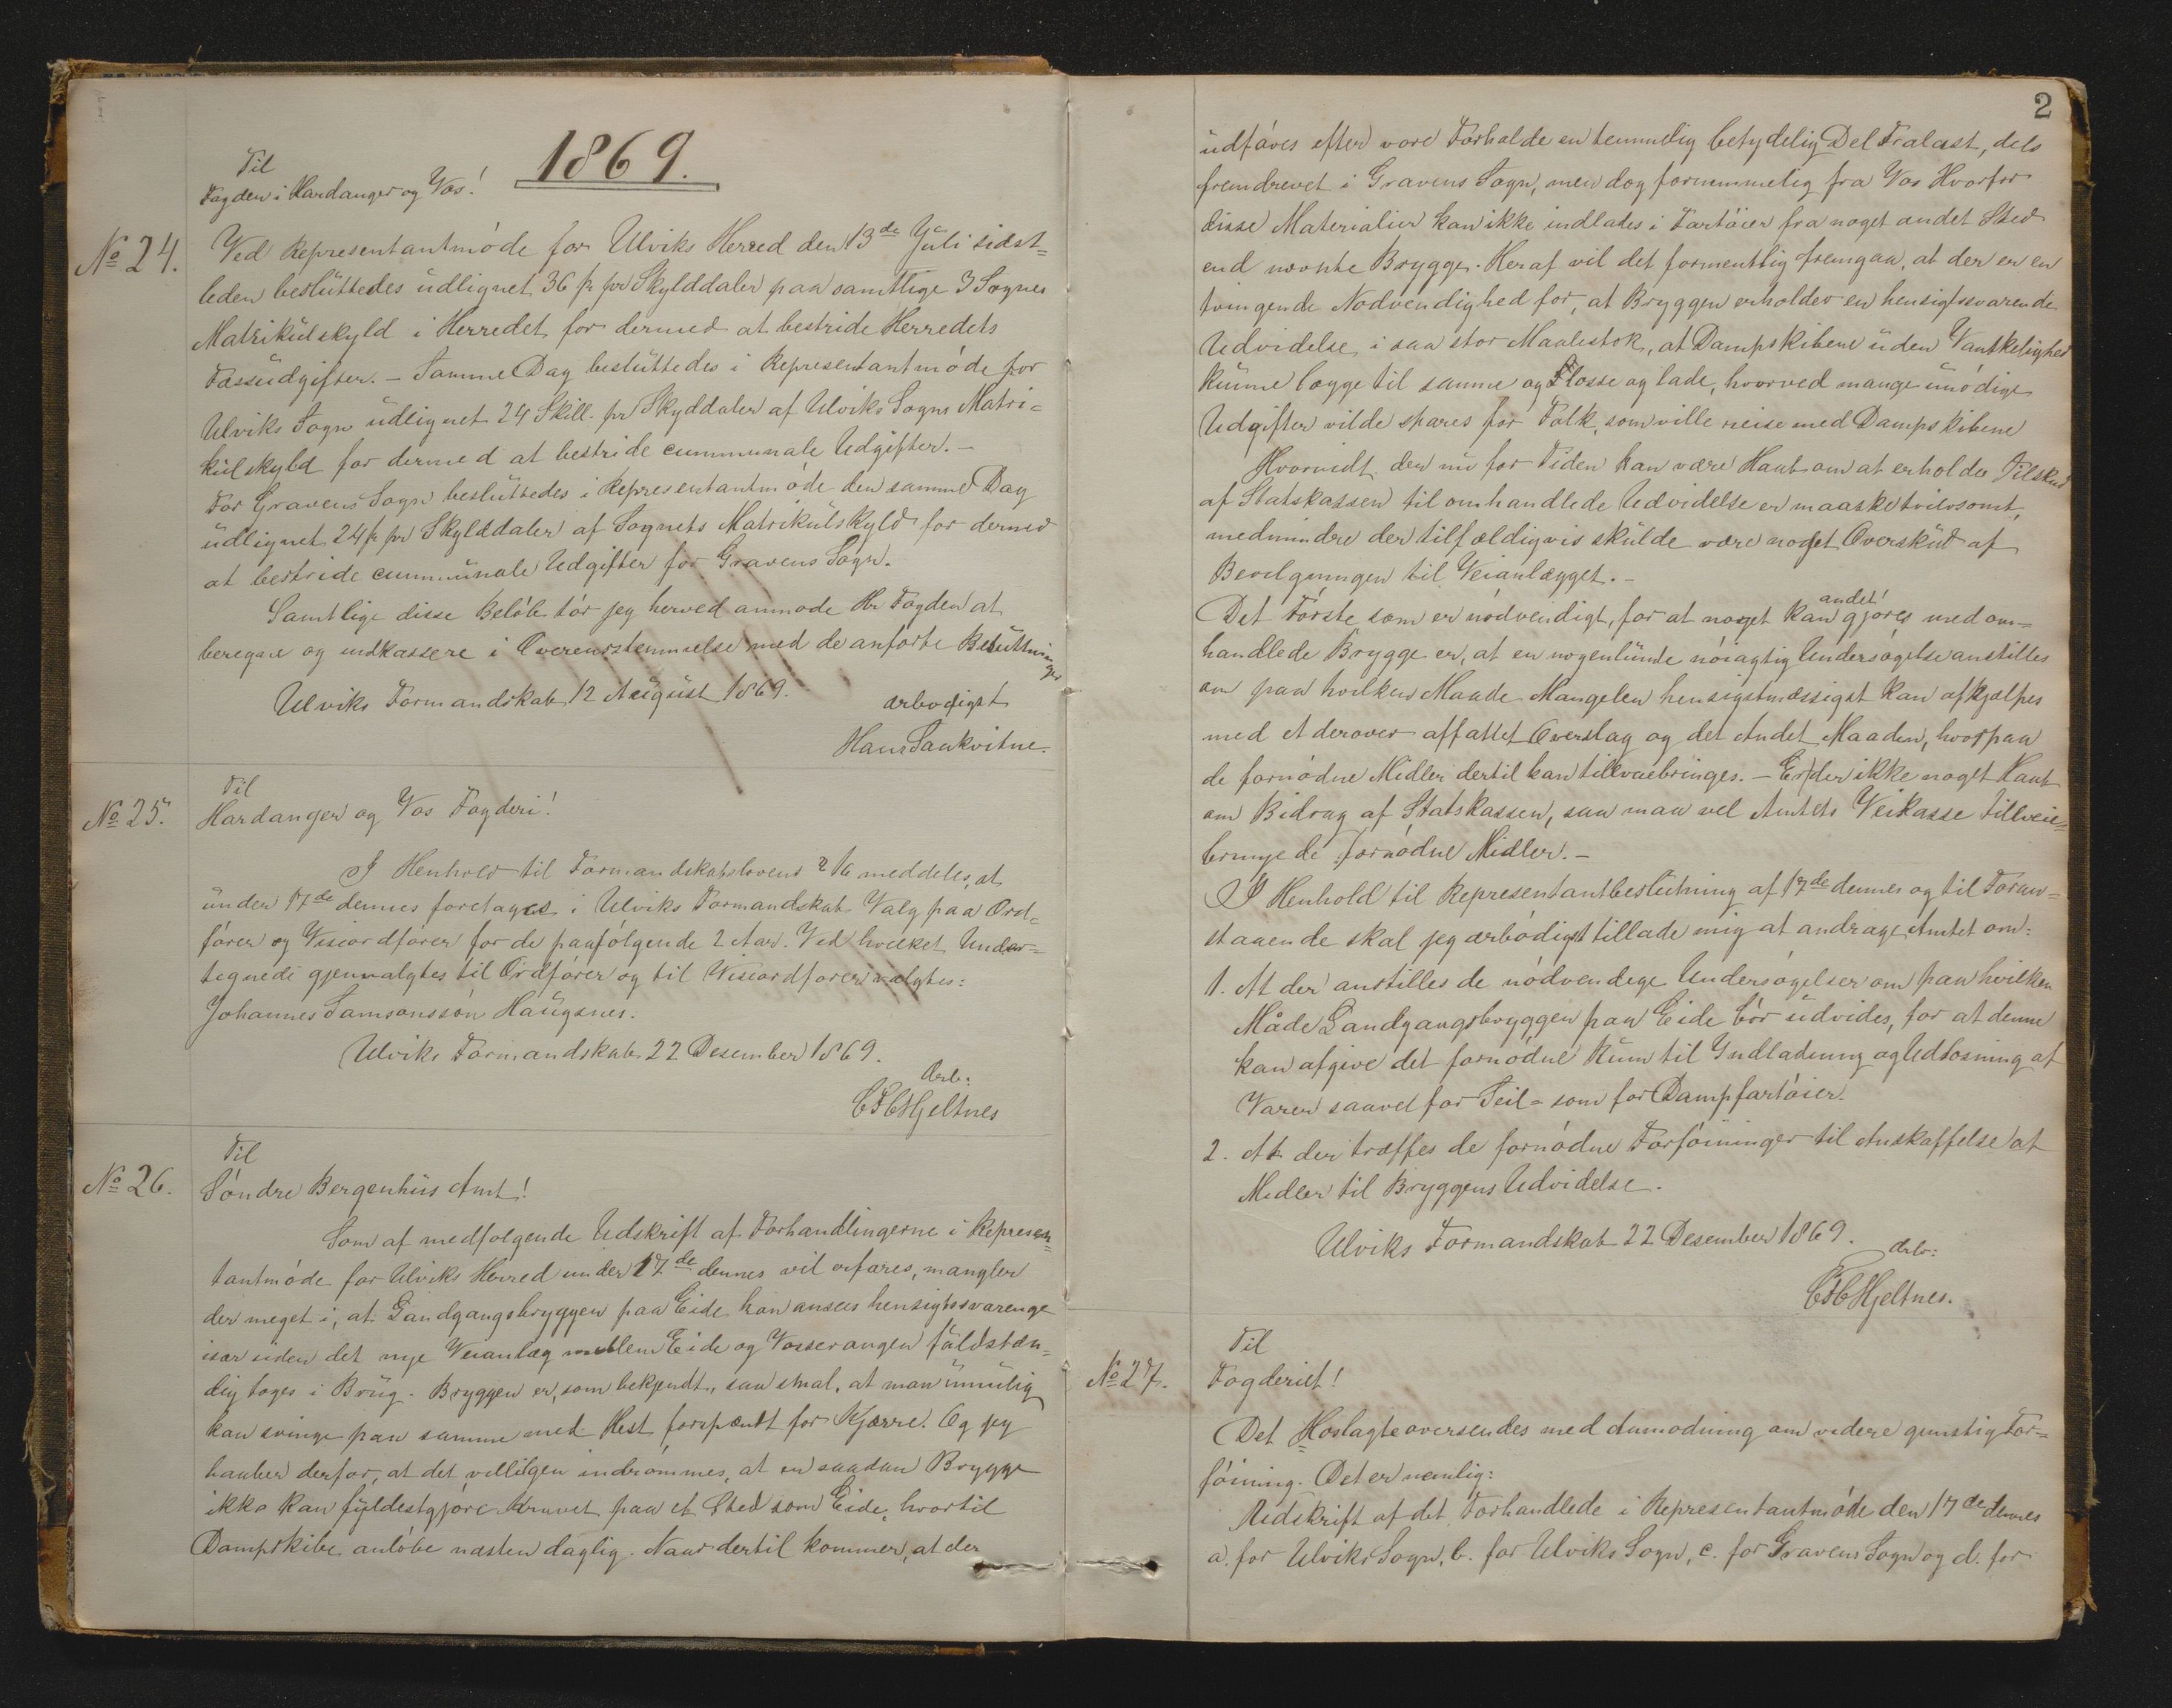 1869.
Til
Fogden i Hardanger og Vos!
No 24. Ved Representantmöde for Ulviks Herred den 13de Juli sidst=
leden besluttedes udlignet 36 ß pr Skylddaler paa samtlige 3 Sognes
Matrikulskyld i Herredet for dermed at bestride Herredets
Fæsudgifter. – Samme Dag besluttedes i Representantmöde for
Ulviks Sogn udlignet 24 Skill. pr Skyddaler af Ulviks Sogns Matri=
kulskyld for dermed at bestride cummunale Udgifter. –
For Gravens Sogn besluttedes i Representantmöde den samme Dag
udlignet 24 ß pr Skylddaler af Sognets Matrikulskyld for dermed
at bestride cummunale Udgifter for Gravens Sogn.
Samtlige disse Belöb tör jeg herved anmode Hr Fogden at
beregne og indkassere i Overensstemmelse med de anförte Beslutninger
Ulviks Formandskab 12 August 1869.
ærbødigst
Hans Sankvitne.
Til
No 25. Hardanger og Vos Fogderi!
I Henhold til Formandskabslovens meddeles, at
under 17de dennes foretages i Ulviks Formandskab Valg paa Ord=
förer og Viseordförer for de paafölgende 2 Aar. Ved hvilket Under=
tegnede gjenvalgtes til Ordförer og til Viseordförer valgtes:
Johannes Samsonssön Haugsnes.
Ulviks Formandskab 22 Desember 1869.
Ærb:
Hjeltnes
Til
No 26. Söndre Bergenhus Amt!
Som af medfølgende Udskrift af Forhandlingerne i Represen=
tantmöde for Ulviks Herred under 17de dennes vil erfares, mangler
der meget i, at Landgangsbryggen paa Eide kan ansees hensigtssvarenge
især siden det nye Veianlæg mellem Eide og Vosservangen fuldstæn=
dig toges i Brug. Bryggen er, som bekjendt, saa smal, at man umulig
kan svinge paa samme med Hest forspændt for Kjærre. Og jeg
haaber derfor, at det villigen indrømmes, at en saadan Brygge
ikke kan fyldestgjöre Kravet paa et Sted som Eide, hvortil
Dampskibe anlöbe næsten daglig. Naar dertil kommer, at der
2
udföres efter vore Forholde en temmelig betydelig Del Trælast, dels
fremdrevet i Gravens Sogn, men dog fornemmelig fra Vos Hvorfor
disse Materialier kan ikke indlades i Fartöier fra noget andet Sted
end nævnte Brygge. Heraf vil det formentlig fremgaa, at der er en
tvingende Nødvendighed for, at Bryggen erholder en hensigtssvarende
Udvidelse i saa stor Maalestok, at Dampskibene uden Vanskelighed
kunne lægge til samme og Losse og lade, hvorved mange unödige
Udgifter vilde spares for Folk, som ville reise med Dampskibene
Hvorvidt der nu for Tiden kan være Haab om at erholde Tilskud
af Statskassen til omhandlede Udvidelse er maaske tvilsomt,
medmindre der tilfældigvis skulde være noget Overskud af
Bevilgningen til Veianlægget. –
Det Förste som er nödvendigt, for at noget andet kan gjöres med om=
handlede Brygge er, at en nogenlunde nöiagtig Undersøgelse anstilles
om paa hvilken Maade Mangelen hensigtmæssigst kan afhjælpes
med et derover affattet Overslag og det Andet Maaden, hvorpaa
de fornödne Midler dertil kan tilveiebringes. – Er der ikke noget Haab
om Bidrag af Statskassen, saa maa vel Amtets Veikasse tilveie=
bringe de fornödne Midler. –
I Henhold til Representantbeslutning af 17de dennes og til Foran=
staaende skal jeg ærbödigst tillade mig at andrage Amtet om:
1. At der anstilles de nödvendege Undersøgelser om paa hvilken
Måde Landgangsbryggen paa Eide bör udvides, for at denne
kan afgive det fornødne Rum til Indladning og Udlosning af
Varer saavel for Seil= som for Dampfartöier.
2. At der træffes de fornödne Forföininger til Anskaffelse af
Midler til Bryggens Udvidelse.
Ulviks Formandskab 22 Desember 1869.
ærb:
Hjeltnes.
Til
No 27. Fogderiet!
Det Hoslagte oversendes med Anmodning om videre gunstig For=
föining. Det er nemlig:
Udskrift af det Forhandlede i Representantmöde den 17de dennes
a. for Ulviks Sogn, b. for Ulviks Sogn, c. for Gravens Sogn og d. for